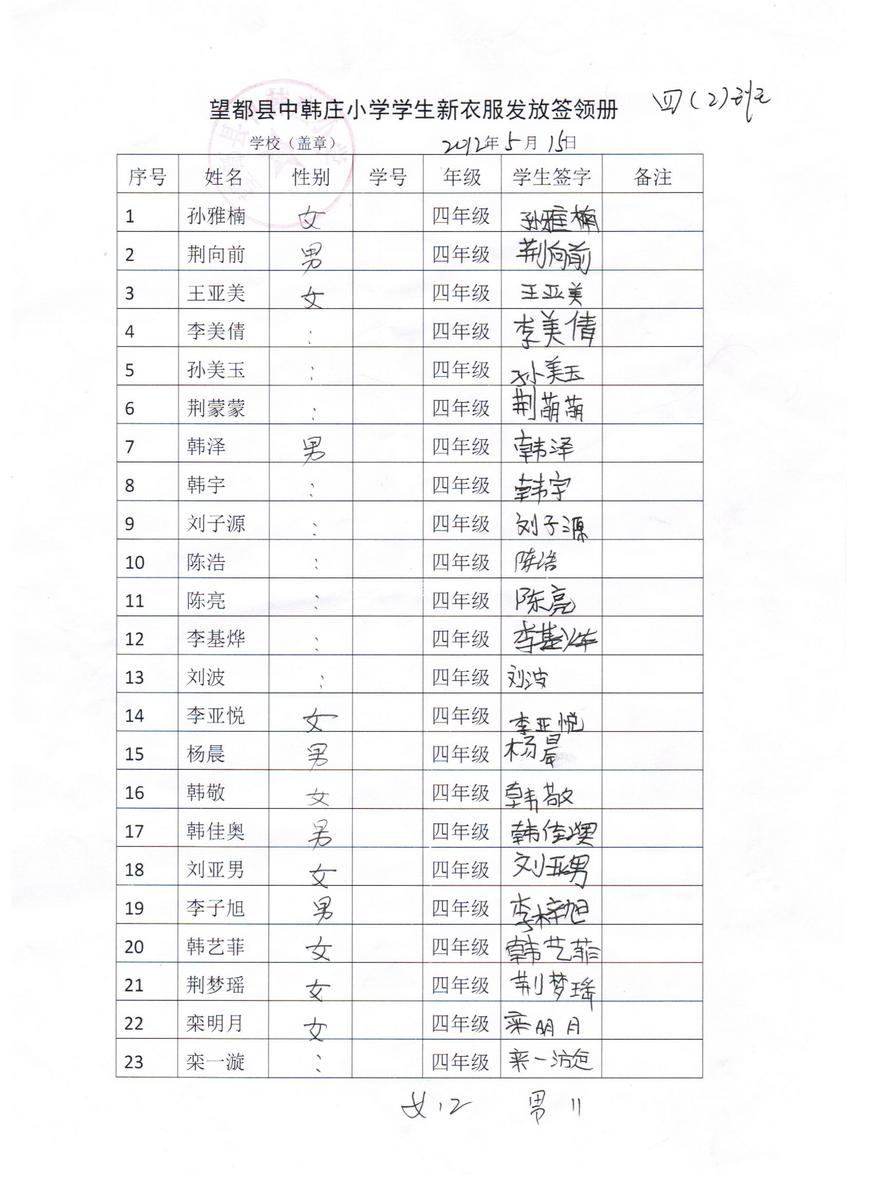 望都县中韩庄小学学生新衣服发放签领册 四（2）班
学校（盖章） 2012年 5月 15日
序号 姓名 性别 学号 年级 学生签字 备注
1 孙雅楠 女 四年级 孙雅楠
2 荆向前 男 四年级 荆向前
3 王亚美 女 四年级 王亚美
4 李美倩 : 四年级 李美倩
5 孙美玉 : 四年级 孙美玉
6 荆蒙蒙 : 四年级 荆萌萌
7 韩泽 男 四年级 韩泽
8 韩宇 : 四年级 韩宇
9 刘子源 : 四年级 刘子源
10 陈浩 : 四年级 陈浩
11 陈亮 : 四年级 陈亮
12 李基烨 : 四年级 李基烨
13 刘波 : 四年级 刘波
14 李亚悦 女 四年级 李亚悦
15 杨晨 男 四年级 杨晨
16 韩敬 女 四年级 韩敬
17 韩佳奥 男 四年级 韩佳澳
18 刘亚男 女 四年级 刘亚男
19 李子旭 男 四年级 李梓旭
20 韩艺菲 女 四年级 韩艺菲
21 荆梦瑶 女 四年级 荆梦瑶
22 栾明月 女 四年级 栾明月
23 栾一漩 : 四年级 栾一
女12 男11